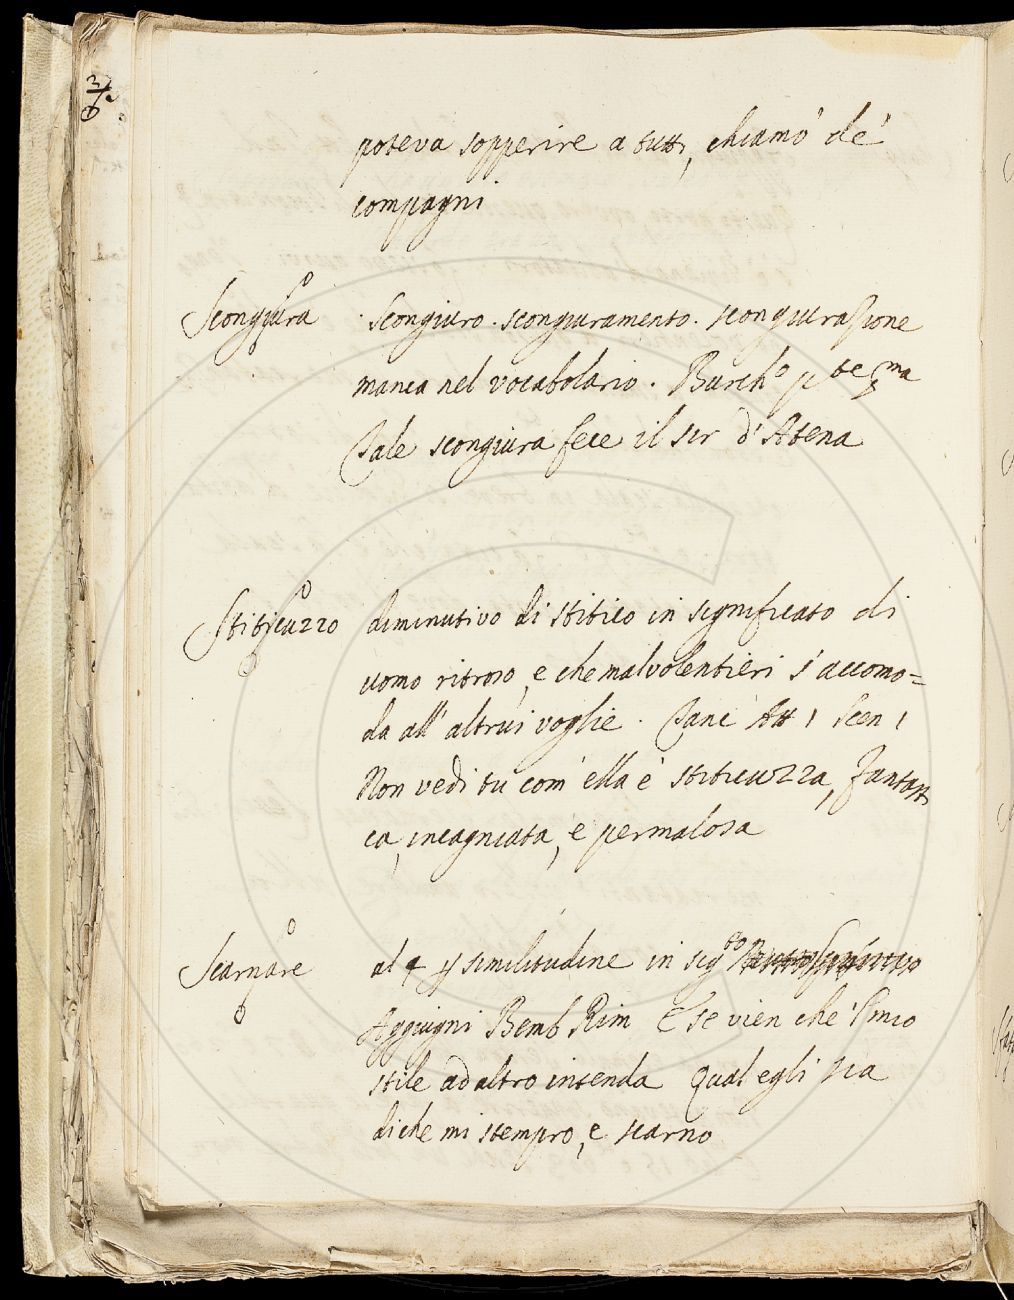 poteva sopperire a tutti, chiamò de'
compagni
Scongiura Scongiuro. scongiuramento. scongiurazione
manca nel vocabolario. Burch.o p.te
Tale scongiura fece il ser d'Atena
Stiticuzzo diminutivo di stitico in significato di
uomo ritroso, e che malvolentieri s'accomo=
da all'altrui voglie. Att 1 Scen 1
Non vedi tu com'ella è stiticuzza, fantasti
ca, incagnata, e permalosa
Scarnare al 4 p similitudine in sig.to
Aggiugni Bemb Rim E se vien che 'l mio
stile ad altro intenda Qual egli sia
di che mi stempro, e scarno